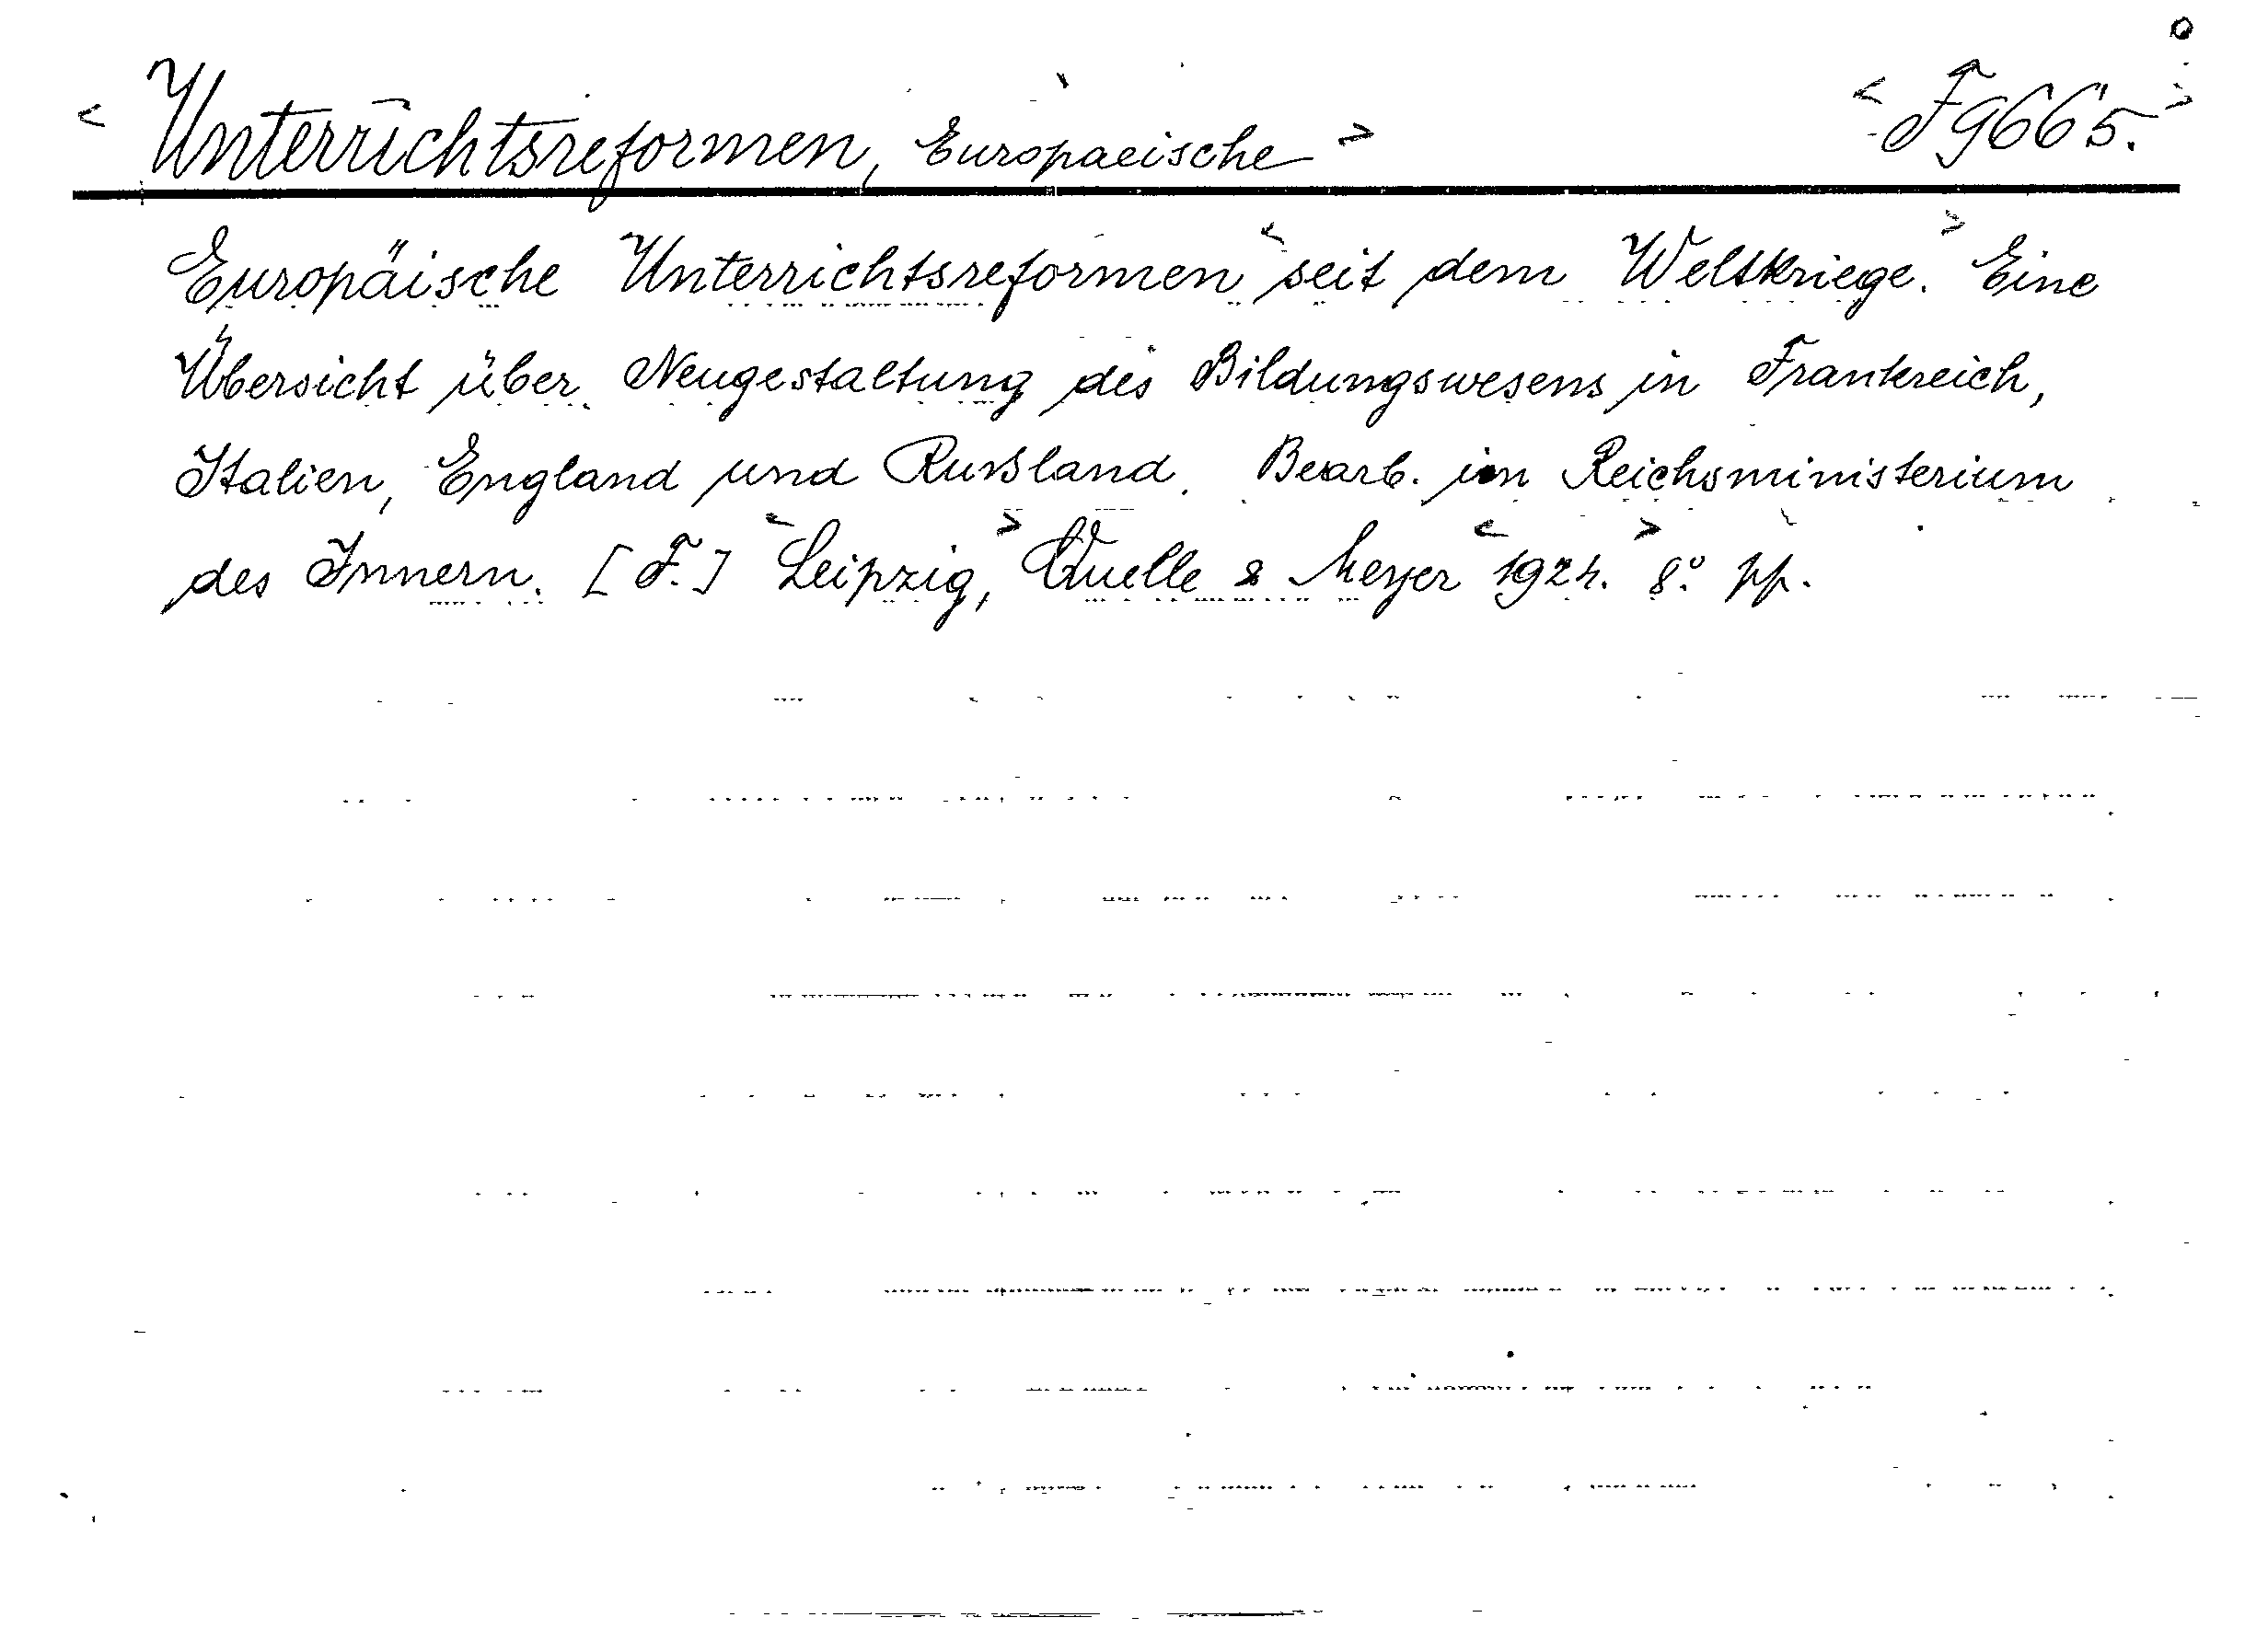 < Unterrichtsreformen, Europaeische > < F9665. >
Europäische Unterrichtsreformen < seit dem Weltkriege. > Eine
Übersicht über Neugestaltung des Bildungswesens in Frankreich,
Italien, England und Rußland. Bearb. im Reichsministerium
des Innern. [F.] < Leipzig, > Quelle & Meyer < 1924. > 8.° pp.